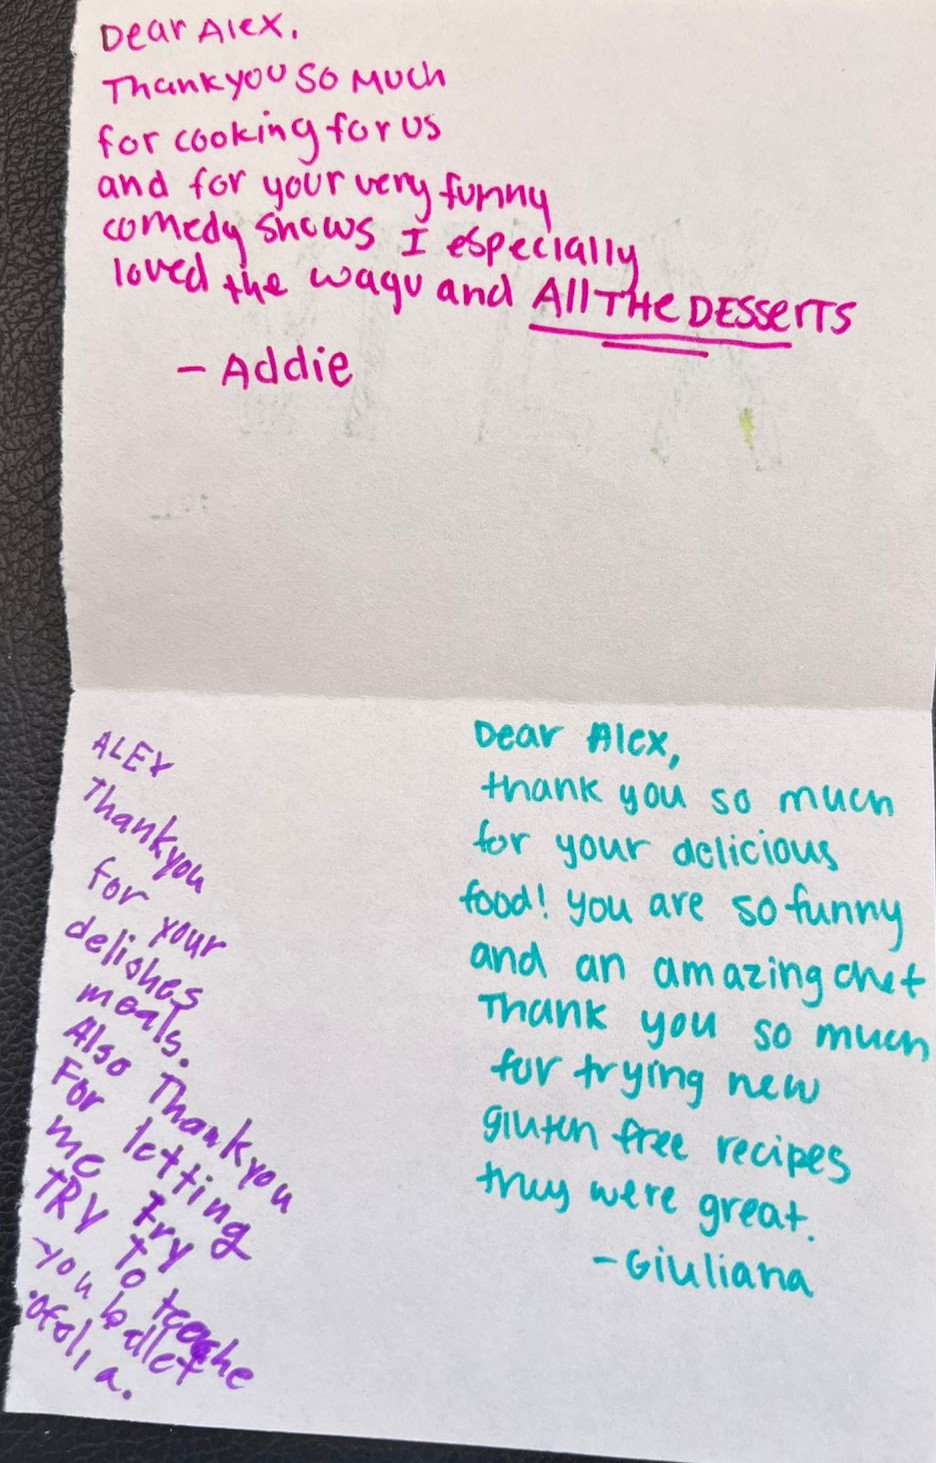 Dear Alex,
Thank you so Much
for cooking for us
and for your very funny
comedy shows I especially
loved the wagu and All THE DESSERTS
- Addie
ALEX
Thank you
for your
delishes
meals.
Also Thank you
For letting
me try
TRY to teache
you ballet
Ofelia.
Dear Alex,
thank you so much
for your delicious
food! you are so funny
and an amazing chef
Thank you so much
for trying new
gluten free recipes
they were great.
- Giuliana